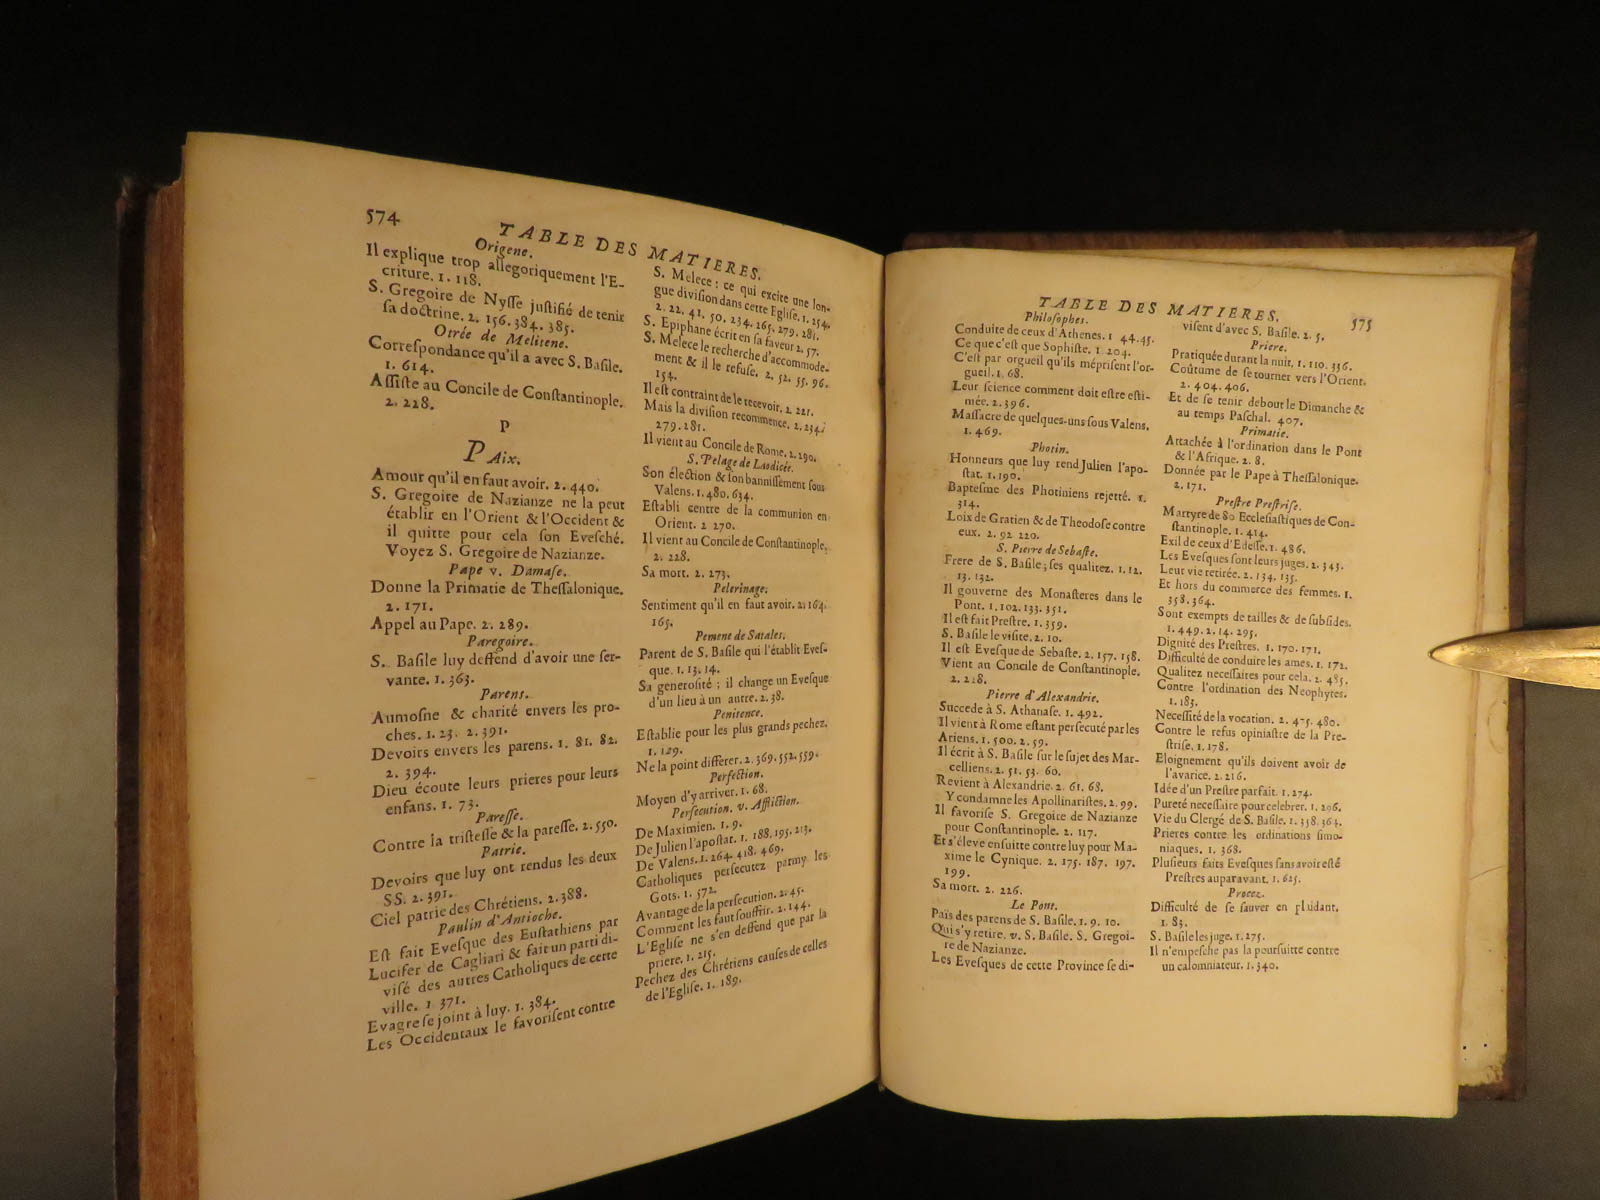 574
TABLE DES MATIERES.
Origene.
Il explique trop allegoriquement l'E-
criture. 1. 118.
S. Gregoire de Nysse justifié de tenir
sa doctrine. 2. 156. 384. 385.
Otrée de Melitene.
Correspondance qu'il a avec S. Basile.
1. 614.
Assiste au Concile de Constantinople.
2. 228.
P
PAix.
Amour qu'il en faut avoir. 2. 440.
S. Gregoire de Nazianze ne la peut
établir en l'Orient & l'Occident &
il quitte pour cela son Evesché.
Voyez S. Gregoire de Nazianze.
Pape v. Damase.
Donne la Primatie de Thessalonique.
2. 171.
Appel au Pape. 2. 289.
Paregoire.
S. Basile luy deffend d'avoir une ser-
vante. 1. 363.
Parens.
Aumosne & charité envers les pro-
ches. 1. 23. 2. 391.
Devoirs envers les parens. 1. 81. 82.
2. 394.
Dieu écoute leurs prieres pour leurs
enfans. 1. 73.
Paresse.
Contre la tristesse & la paresse. 2. 550.
Patrie.
Devoirs que luy ont rendus les deux
SS. 2. 391.
Ciel patrie des Chrétiens. 2. 388.
Paulin d'Antioche.
Est fait Evesque des Eustathiens par
Lucifer de Cagliari & fait un parti di-
visé des autres Catholiques de cette
ville. 1 371.
Evagre se joint à luy. 1. 384.
Les Occidentaux le favorisent contre
S. Melece : ce qui excite une lon-
gue division dans cette Eglise. 1. 254.
2. 22. 41. 50. 234. 265. 279. 281.
S. Epiphane écrit en sa faveur 2. 57.
S. Melece le recherche d'accommode-
ment & il le refuse. 2. 52. 55. 96.
154.
Il est contraint de le recevoir. 2. 221.
Mais la division recommence. 2. 234.
279. 281.
Il vient au Concile de Rome. 2. 290.
S. Pelage de Laodicée.
Son élection & son bannissement sous
Valens. 1. 480. 634.
Establi centre de la communion en
Orient. 2 270.
Il vient au Concile de Constantinople.
2. 228.
Sa mort. 2. 273.
Pelerinage.
Sentiment qu'il en faut avoir. 2. 164.
165.
Pemene de Satales.
Parent de S. Basile qui l'établit Eves-
que. 1. 13. 14.
Sa generosité ; il change un Evesque
d'un lieu à un autre. 2. 38.
Penitence.
Establie pour les plus grands pechez.
1. 129.
Ne la point differer. 2. 369. 552. 559.
Perfection.
Moyen d'y arriver. 1. 68.
Persecution. v. Affliction.
De Maximien. 1. 9.
De Julien l'apostat. 1. 188. 195. 213.
De Valens. 1. 264. 418. 469.
Catholiques persecutez parmy les
Gots. 1. 572.
Avantage de la persecution. 2. 45.
Comment les faut souffrir. 2. 144.
L'Eglise ne s'en deffend que par la
priere. 1. 215.
Pechez des Chrétiens causes de celles
de l'Eglise. 1. 189.
TABLE DES MATIERES.
575
Philosophes.
Conduite de ceux d'Athenes. 1 44. 45.
Ce que c'est que Sophiste. 1. 204.
C'est par orgueil qu'ils méprisent l'or-
gueil. 1. 68.
Leur science comment doit estre esti-
mée. 2. 396.
Massacre de quelques-uns sous Valens.
1. 469.
Photin.
Honneurs que luy rend Julien l'apo-
stat. 1. 190.
Baptesme des Photiniens rejetté. 1.
314.
Loix de Gratien & de Theodose contre
eux. 2. 92 220.
S. Pierre de Sebaste.
Frere de S. Basile ; ses qualitez. 1. 12.
13. 132.
Il gouverne des Monasteres dans le
Pont. 1. 102. 133. 351.
Il est fait Prestre. 1. 359.
S. Basile le visite. 2. 10.
Il est Evesque de Sebaste. 2. 157. 158.
Vient au Concile de Constantinople.
2. 228.
Pierre d'Alexandrie.
Succede à S. Athanase. 1. 492.
Il vient à Rome estant persecuté par les
Ariens. 1. 500. 2. 59.
Il écrit à S. Basile sur le sujet des Mar-
celliens. 2. 51. 53. 60.
Revient à Alexandrie. 2. 61. 68.
Y condamne les Apollinaristes. 2. 99.
Il favorise S. Gregoire de Nazianze
pour Constantinople. 2. 117.
Et s'éleve ensuitte contre luy pour Ma-
xime le Cynique. 2. 175. 187. 197.
199.
Sa mort. 2. 226.
Le Pont.
Païs des parens de S. Basile. 1. 9. 10.
Qui s'y retire. v. S. Basile. S. Gregoi-
re de Nazianze.
Les Evesques de cette Province se di-
visent d'avec S. Basile. 2. 5.
Priere.
Pratiquée durant la nuit. 1. 110. 336.
Coûtume de se tourner vers l'Orient.
2. 404. 406.
Et de se tenir debout le Dimanche &
au temps Paschal. 407.
Primatie.
Attachée à l'ordination dans le Pont
& l'Afrique. 2. 8.
Donnée par le Pape à Thessalonique.
2. 171.
Prestre Prestrise.
Martyre de 80 Ecclesiastiques de Con-
stantinople. 1. 414.
Exil de ceux d'Edesse. 1. 486.
Les Evesques sont leurs juges. 2. 343.
Leur vie retirée. 2. 134. 135.
Et hors du commerce des femmes. 1.
358. 364.
Sont exempts de tailles & de subsides.
1. 449. 2. 14. 295.
Dignité des Prestres. 1. 170. 171.
Difficulté de conduire les ames. 1. 172.
Qualitez necessaires pour cela. 2. 485.
Contre l'ordination des Neophytes.
1. 183.
Necessité de la vocation. 2. 475. 480.
Contre le refus opiniastre de la Pre-
strise. 1. 178.
Eloignement qu'ils doivent avoir de
l'avarice. 2. 216.
Idée d'un Prestre parfait. 1. 274.
Pureté necessaire pour celebrer. 1. 296.
Vie du Clergé de S. Basile. 1. 358. 364.
Prieres contre les ordinations simo-
niaques. 1. 368.
Plusieurs faits Evesques sans avoir esté
Prestres auparavant. 1. 625.
Procez.
Difficulté de se sauver en plaidant.
1. 83.
S. Basile les juge. 1. 275.
Il n'empesche pas la poursuitte contre
un calomniateur. 1. 340.